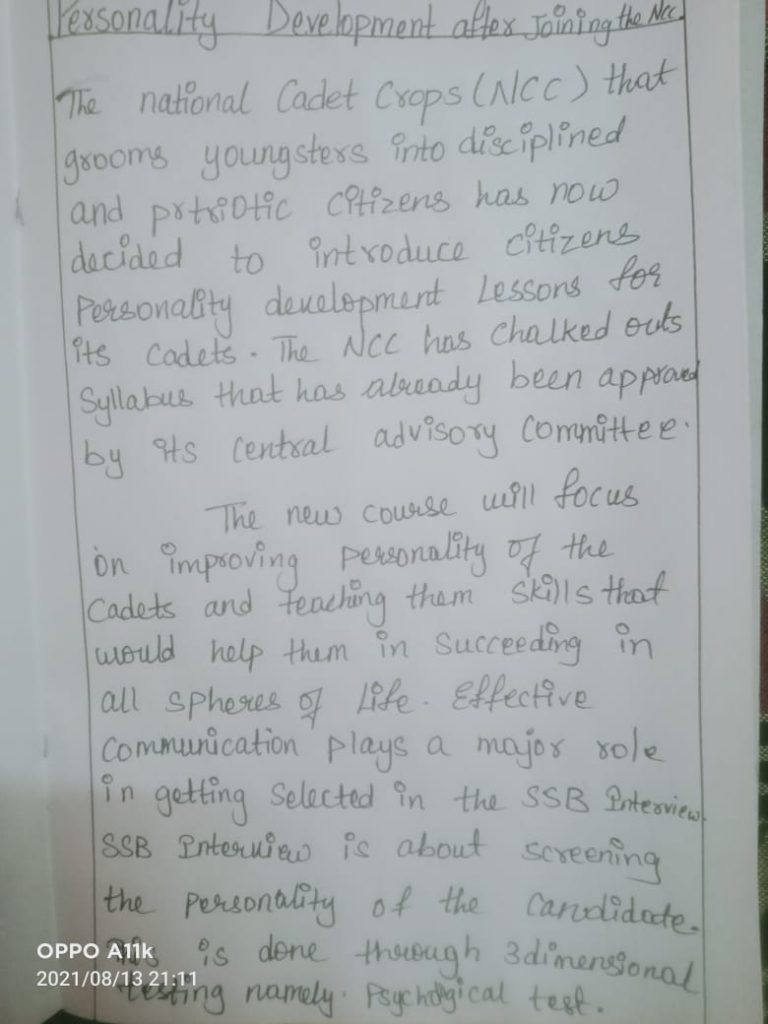 Personality Development after Joining the Ncc.
The national Cadet Crops (NCC) that
grooms youngsters into disciplined
and prtriotic citizens has now
decided to introduce citizens
Personality development Lessons for
its cadets. The NCC has chalked outs
Syllabus that has already been approved
by its central advisory committee.
The new course will focus
on improving personality of the
Cadets and teaching them skills that
would help them in succeeding in
all spheres of Life. Effective
Communication plays a major role
in getting Selected in the SSB Interview.
SSB Interview is about screening
the personality of the candidate.
is done through 3dimensional
testing namely. Psychological test.
OPPO A11k
2021/08/13 21:11